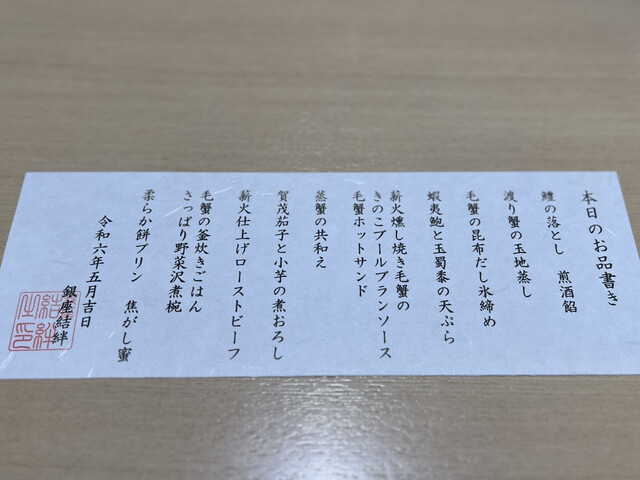 本日のお品書き
鱧の落とし　煎酒餡
渡り蟹の玉地蒸し
毛蟹の昆布だし氷締め
蝦夷鮑と玉蜀黍の天ぷら
薪火燻し焼き毛蟹の
きのこブールブランソース
毛蟹ホットサンド
蒸蟹の共和え
賀茂茄子と小芋の煮おろし
薪火仕上げローストビーフ
毛蟹の釜炊きごはん
さっぱり野菜沢煮椀
柔らか餅プリン　焦がし蜜
令和六年五月吉日
銀座結絆